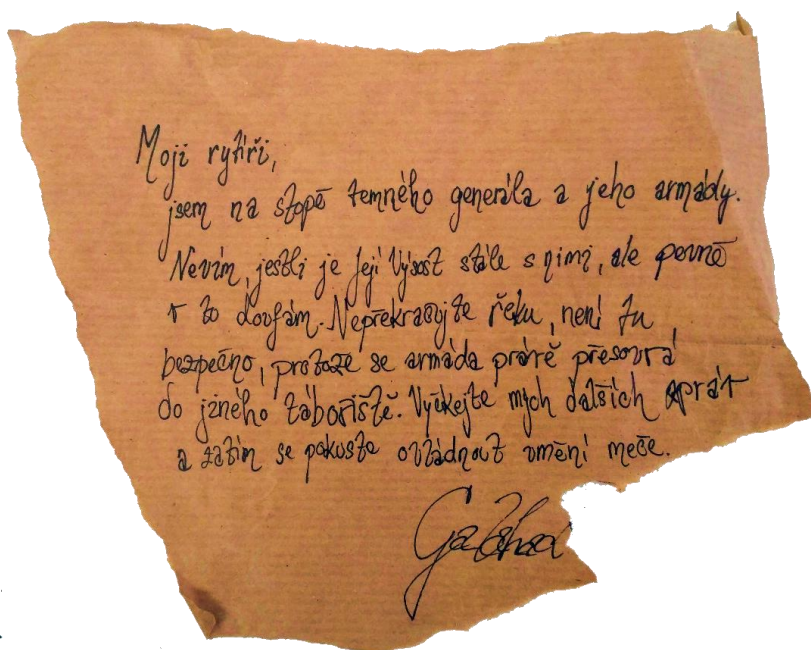 Moji rytíři,
jsem na stopě temného generála a jeho armády.
Nevím, jestli je Její Výsost stále s nimi, ale pevně
v to doufám. Nepřekračujte řeku, není tu
bezpečno, protože se armáda právě přesouvá
do jiného tábořiště. Vyčkejte mých dalších zpráv
a zatím se pokuste ovládnout umění meče.
Galahad